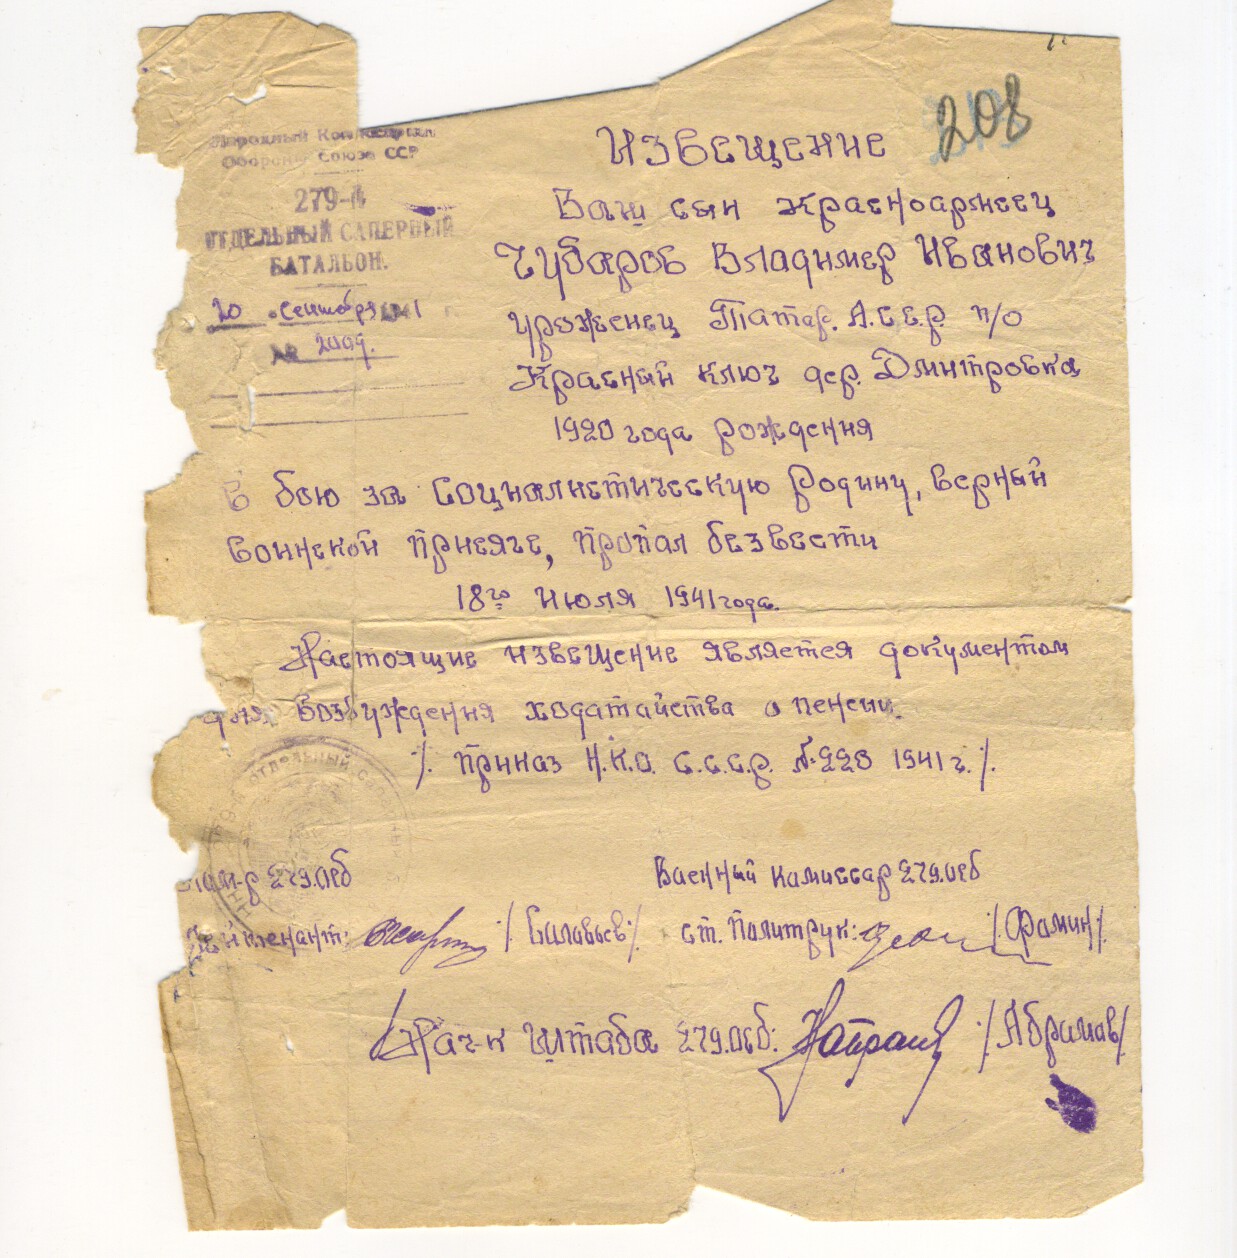 208
Народный Комиссариат
Обороны Союза ССР
279-й
ОТДЕЛЬНЫЙ САПЕРНЫЙ
БАТАЛЬОН.
20 сентября 1941
№ 2009.
Извещение
Ваш сын красноармеец
Чубаров Владимер Иванович
уроженец Татар. А.С.С.Р. п/о
Красный ключ дер. Дмитровка
1920 года рождения
в бою за социалистическую родину, верный
воинской присяге, пропал безвести
18го июля 1941 года.
Настоящие извещение является документом
для возбуждения ходатайства о пенсии.
/. приказ Н.К.О. С.С.С.Р. № 220 1941 г. /.
ОТДЕЛЬНЫЙ
Ком-р 279.осб
Военный комиссар 279.осб
Лейтенант: /. Саловьев /.
ст. Политрук: /. Фамин /.
Нач-к штаба 279.осб: /. Абрамав /.